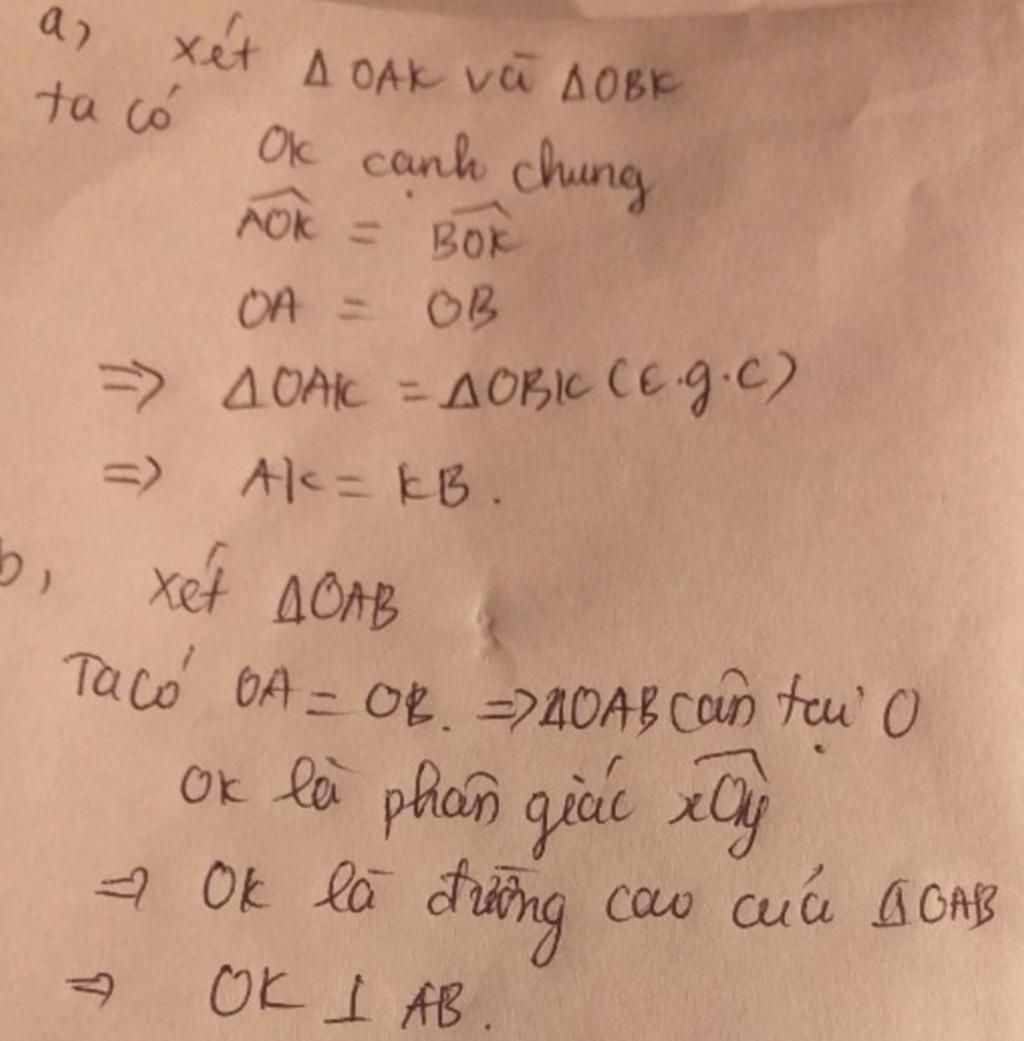 a, xét Δ OAK và ΔOBK
ta có
OK cạnh chung
\widehat{AOK} = \widehat{BOK}
OA = OB
=> ΔOAK = ΔOBK (c.g.c)
=> AK = KB.
b, xét ΔOAB
Ta có OA = OB. => ΔOAB cân tại O
OK là phân giác \widehat{xOy}
=> OK là đường cao của ΔOAB
=> OK ⊥ AB.